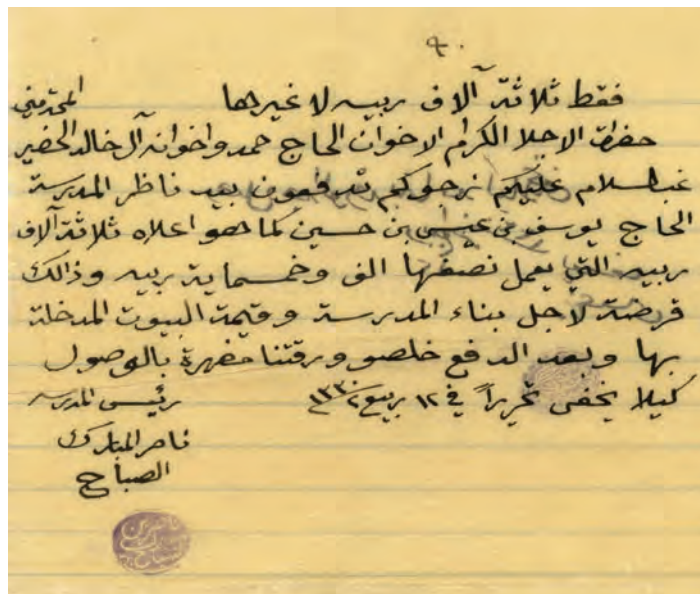 ٩٠
فقط ثلاثة آلاف ربيه لا غيرها
المحترمين
حضرات الاجلا الكرام الاخوان الحاج حمد واخوانه آل خالد الخضير
غب السلام عليكم نرجوكم تدفعون بيد ناظر المدرسة
الحاج يوسف بن عيسى بن حسين كما هو اعلاه ثلاثة آلاف
ربيه التي يعمل نصفها الف وخمسماية ربيه وذالك
قرضة لاجل بناء المدرسة وقيمة البيوت المدخلة
بها وبعد الدفع خلصو ورقتنا مضهرة بالوصول
كيلا يخفى تحريراً في ١٢ ربيع ٢ ١٣٣٠
رئيس المدرسه
ناصر المبارك
الصباح
ناصر بن
مبارك
الصباح